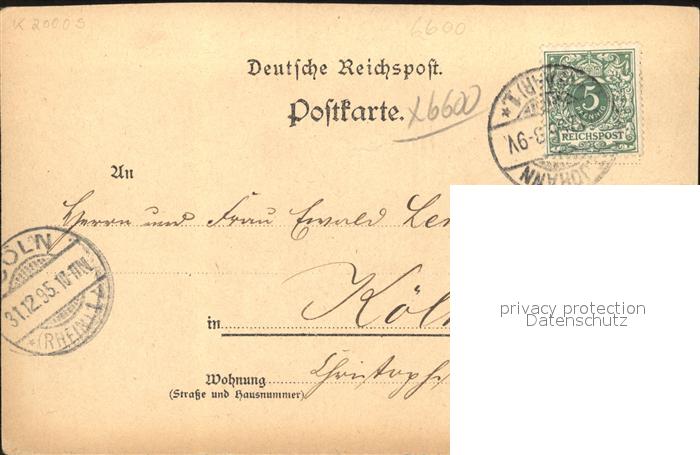 K 2000 S
6600
Deutsche Reichspost.
Postkarte.
X6600
5
PFENNIG
REICHSPOST
JOHANN
3-9V.
An
Herrn und Frau Ewald
CÖLN
31.12.95.10-11N.
*(RHEIN) 1.
in Köln
Wohnung Christoph
(Straße und Hausnummer)
privacy protection
Datenschutz